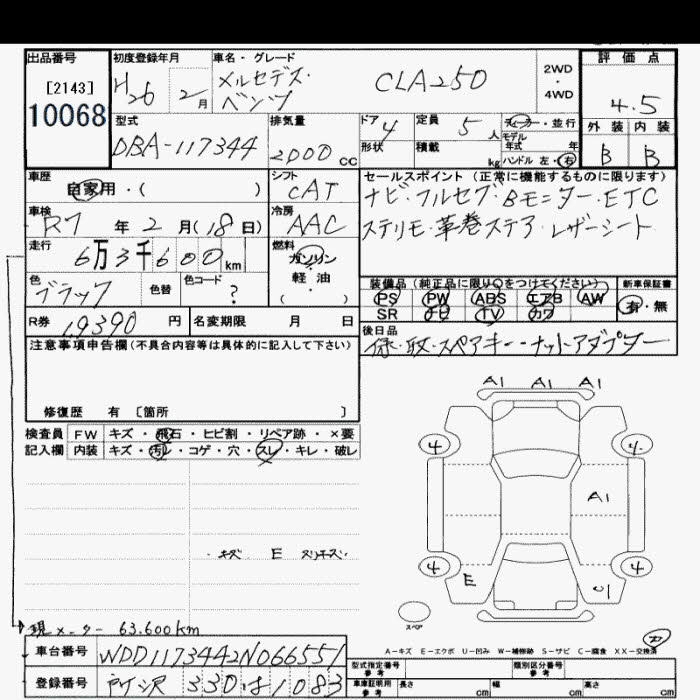 出品番号 初度登録年月 車名・グレード 評価点
[2143] H26 2月 メルセデス・ベンツ CLA250 2WD・4WD 4.5
10068 型式 排気量 ドア 定員 ディーラー・並行 外装 内装
DBA-117344 2000cc 4 5人 モデル年式 年 B B
形状 積載 kg ハンドル 左・右
車歴 シフト セールスポイント(正常に機能するものに限ります)
自家用・( ) CAT ナビ・フルセグ・Bモニター・ETC
車検 冷房 ステリモ・革巻ステア・レザーシート
R7年2月(18日) AAC
走行 燃料
6万3千600km ガソリン・軽油・( )
装備品(純正品に限り○をつけてください) 新車保証書
色 色替 色コード PS PW ABS エアB AW 有・無
ブラック ? SR ナビ TV カワ
R券 19390円 名変期限 月 日 後日品
保・取・スペアキー・ナットアダプター
注意事項申告欄(不具合内容等は具体的に記入して下さい)
修復歴 有 〔箇所 〕
検査員 FW キズ・飛石・ヒビ割・リペア跡・×要
記入欄 内装 キズ・汚レ・コゲ・穴・スレ・キレ・破レ
A1 A1 A1
4 4
A1
・キズ E スリキズ・
4 4
E U1
スペア
現メーター 63.600km
A-キズ E-エクボ U-凹み W-補修跡 S-サビ C-腐食 XX-交換済
車台番号 WDD1173442N066551 型式指定番号 参考 類別区分番号 参考
登録番号 所沢 330 は 1083 車庫証明用 参考 長さ cm 幅 cm 高さ cm